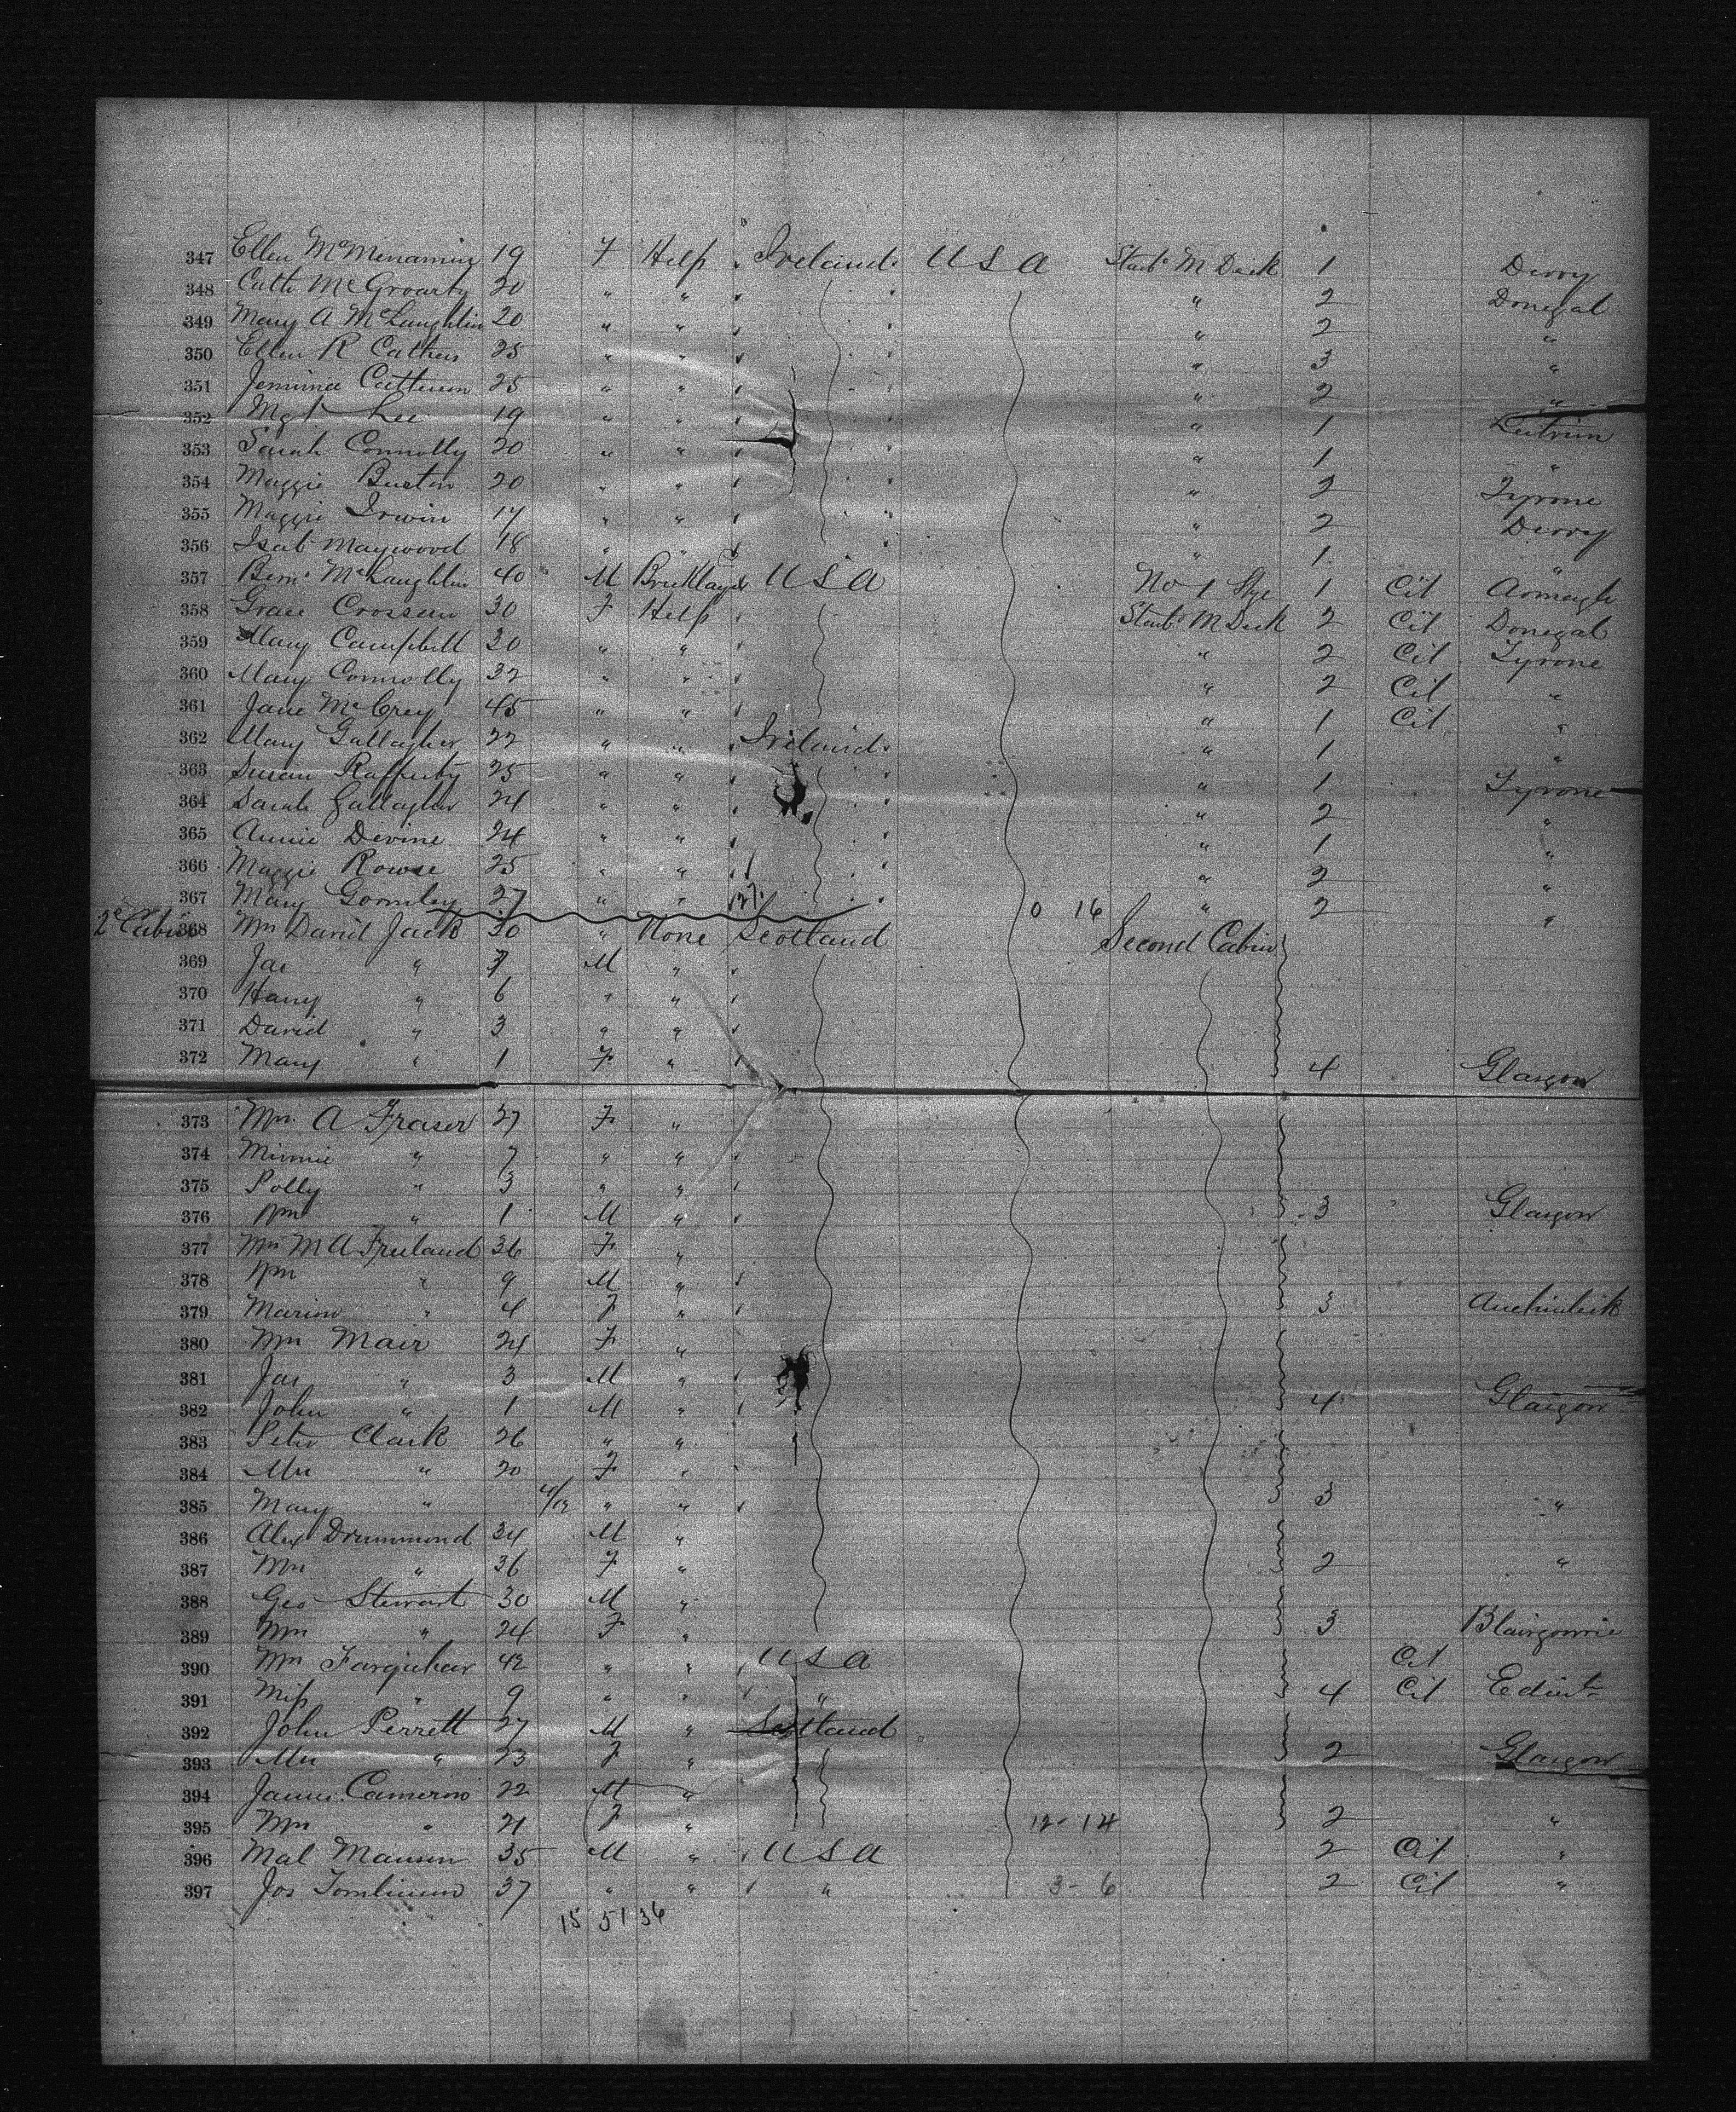 347 Ellen McMenamin 19 F Help Ireland USA Starbd M Deck 1 Derry
348 Cath McGroarty 20 " " " 2 Donegal
349 Mary A McLaughlin 20 " " " 2 "
350 Ellen R 25 " " " 3 "
351 Jemima 25 " " " 2 "
352 Mgt Lee 19 " " " 1 Leitrim
353 Sarah Connolly 20 " " " 1 "
354 Maggie 20 " " " 2 Tyrone
355 Maggie Irwin 17 " " " 2 Derry
356 Isab Maywood 18 " " " 1 "
357 Bern McLaughlin 40 M Bricklayer USA No 1 Stge 1 Cit Armagh
358 Grace Crossen 30 F Help Starbd M Deck 2 Cit Donegal
359 Mary Campbell 30 " " " 2 Cit Tyrone
360 Mary Connolly 32 " " " 2 Cit "
361 Jane McCrey 45 " " " 1 Cit "
362 Mary Gallagher 22 " " Ireland " 1 "
363 Susan Rafferty 25 " " " 1 Tyrone
364 Sarah Gallagher 24 " " " 2 "
365 Annie Devine 24 " " " 1 "
366 Maggie Rowse 25 " " " 2 "
367 Mary Gormley 27 " " 0 16 " 2 "
2d Cabin 368 Mrs David Jack 30 " None Scotland Second Cabin
369 Jas " 7 M "
370 Harry " 6 " "
371 David " 3 " "
372 Mary " 1 F " 4 Glasgow
373 Mrs A Fraser 27 F "
374 Minnie " 7 " "
375 Polly " 3 " "
376 Wm " 1 M " 3 Glasgow
377 Mrs M A Freeland 36 F "
378 Wm " 9 M "
379 Marion " 4 F " 3 Auchinleck
380 Mrs Mair 24 F "
381 Jas " 3 M "
382 John " 1 M " 4 Glasgow
383 Peter Clark 26 " "
384 Mrs " 20 F "
385 Mary " " " 3 "
386 Alex Drummond 34 M "
387 Mrs " 36 F " 2 "
388 Geo Stewart 30 M "
389 Mrs " 24 F " 3 Blairgowrie
390 Mrs Farquhar 42 " " USA Cit
391 Miss " 9 " " " 4 Cit Edinb
392 John Perrett 27 M " Scotland
393 Mrs " 23 F " 2 Glasgow
394 James Cameron 22 M "
395 Mrs " 21 F " 12-14 2 "
396 Mal Manson 35 M " USA 2 Cit "
397 Jos Tomlinson 37 " " " 3-6 2 Cit "
15 51 36